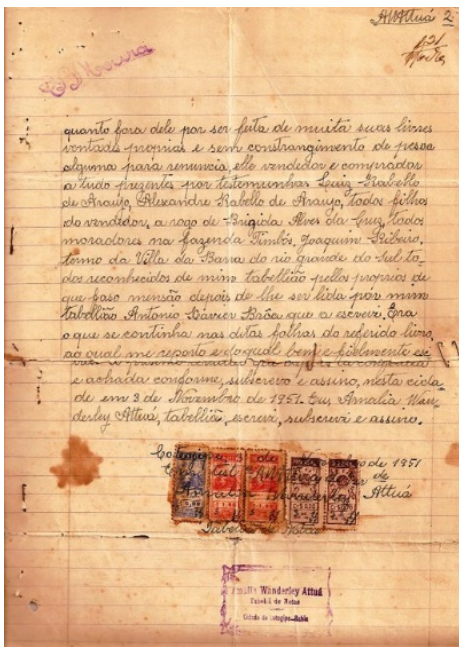 AWAttuá 2
quanto fora dele por ser feita de muita suas livres
vontades proprias e sem constrangimento de pessoa
alguma para renuncia elle vendedor e comprador
a tudo prezentes por testemunhas Luiz Rabello
de Araujo, Alexandre Rabello de Araujo, todos filhos
do vendedor, a rogo de Brigida Alves da Cruz, todos
moradores na fazenda Timbós, Joaquim Ribeiro,
termo da Villa da Barra do rio grande do Sul to
dos reconhecidos de mim tabellião pellos proprios de
que faso mensão depois de lhe ser lida por mim
tabellião Antonio Xavier Brôa que a escrevi. Era
o que se continha nas ditas folhas do referido livro,
ao qual me reporto e do qual bem e fielmente
e achada conforme, subscrevo e assino, nesta cida-
de em 3 de Novembro de 1951. Eu, Amalia Wan-
derley Attuá, tabelliã, escrevi, subscrevi e assino.
Cotegipe de 1951
Amalia Wanderley Attuá
Tabeliã de Notas
Amalia Wanderley Attuá
Tabeliã de Notas
Cidade de Cotegipe-Bahia